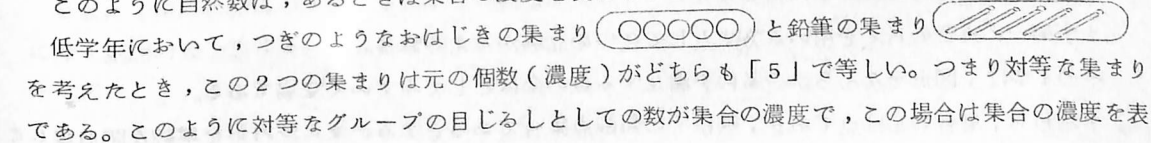 このように自然数は,あるときは集合の濃度を
低学年において,つぎのようなおはじきの集まり(○○○○○)と鉛筆の集まり
を考えたとき,この2つの集まりは元の個数(濃度)がどちらも「5」で等しい。つまり対等な集まり
である。このように対等なグループの目じるしとしての数が集合の濃度で,この場合は集合の濃度を表